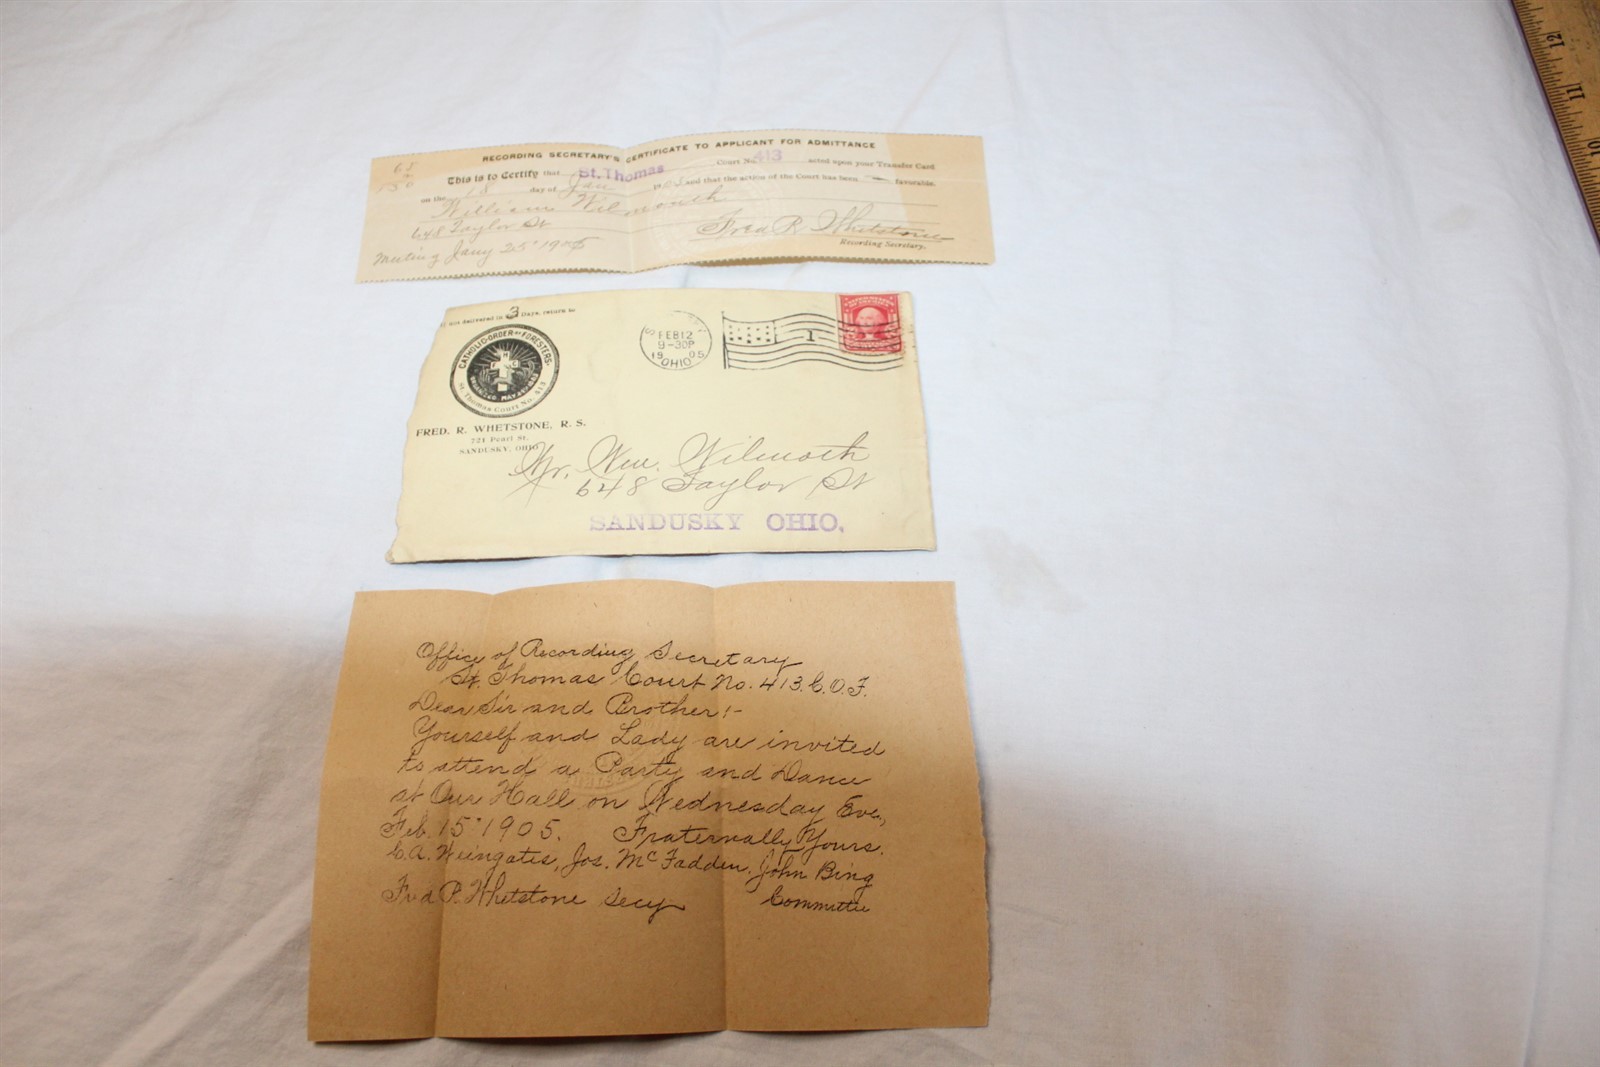 RECORDING SECRETARY'S CERTIFICATE TO APPLICANT FOR ADMITTANCE
68
150
This is to Certify that St. Thomas Court No. 413 acted upon your Transfer Card
on the 18 day of Jan 1905 and that the action of the Court has been favorable.
William Wilmoth
648 Taylor St
Fred R Whetstone
Recording Secretary.
Meeting Jany 25" 1905
If not delivered in 3 Days, return to
CATHOLIC ORDER OF FORESTERS
St Thomas Court No. 413
FRED. R. WHETSTONE, R. S.
721 Pearl St.
SANDUSKY, OHIO
FEB 12
9-30P
1905
OHIO
1
Mr. Wm. Wilmoth
648 Taylor St
SANDUSKY OHIO.
Office of Recording Secretary
St. Thomas Court No. 413. C.O.F.
Dear Sir and Brother:-
Yourself and Lady are invited
to attend a Party and Dance
at Our Hall on Wednesday Eve.,
Feb. 15" 1905. Fraternally Yours.
C.A. Weingates, Jos. McFadden, John Bing
Fred R. Whetstone Secy Committee
12
11
10